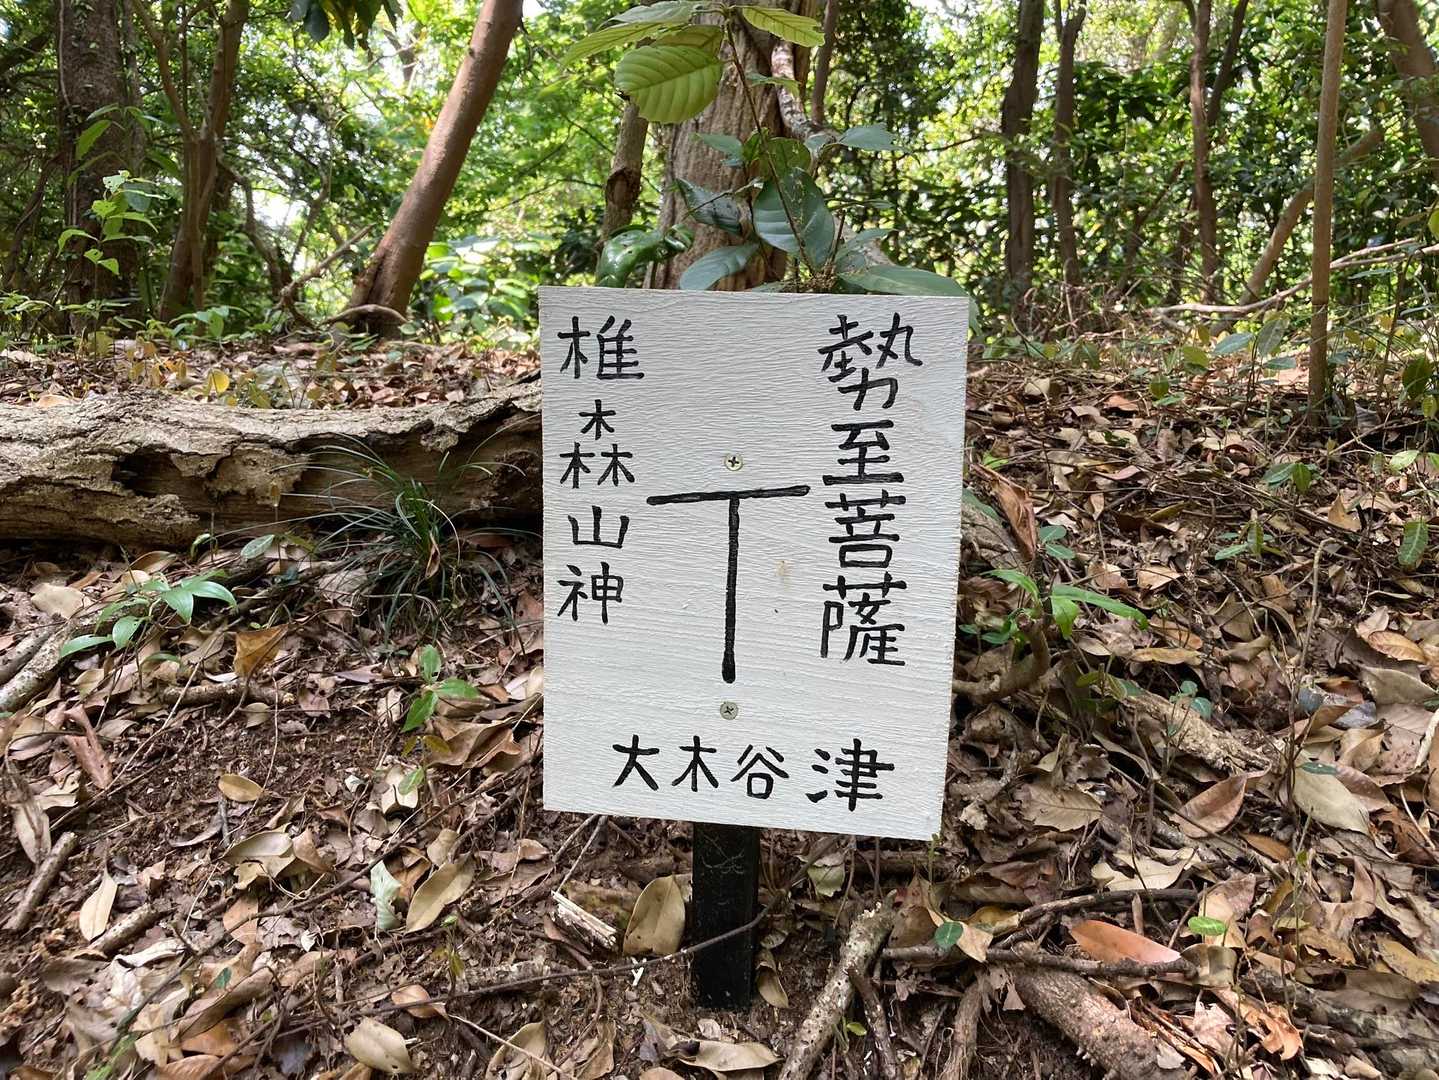 勢至菩薩
椎森山神
大木谷津